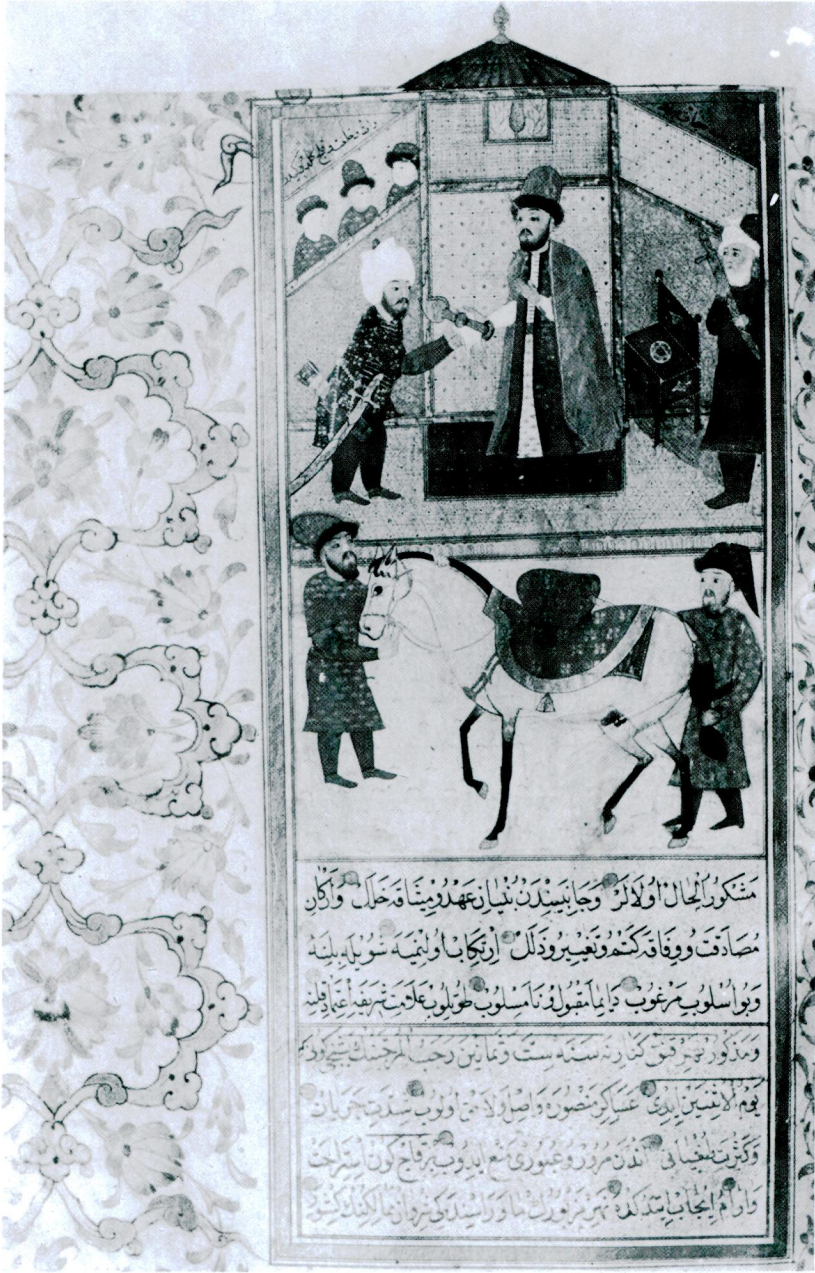 مشكور الحال اولالر وجانبيندن بنيان عهد و ميثاقه خلل و اركان
مصادقت و وفاقه كتم و تغيير و ذلل ارتكاب اولنميه شويله بلينه
و بو اسلوب مرغوب دايما مقبول و نامسلوب طوتلوب علامت شريفه اعتماد قلنه
و مذكور نهر قنق كنارنه سنه ست و ثمانين رجب المرجبنك
يوم الاثنين ايدى عساكر منصور واصل اولوب شدت جريان
و كثرت طغيانى اندن مرور و عبورى منع ايدوب بر قاچ كون استراحت
و ارام ايجاب ايتدكده نهر مزبورك ماوراسنده كى شروان ممالكنك